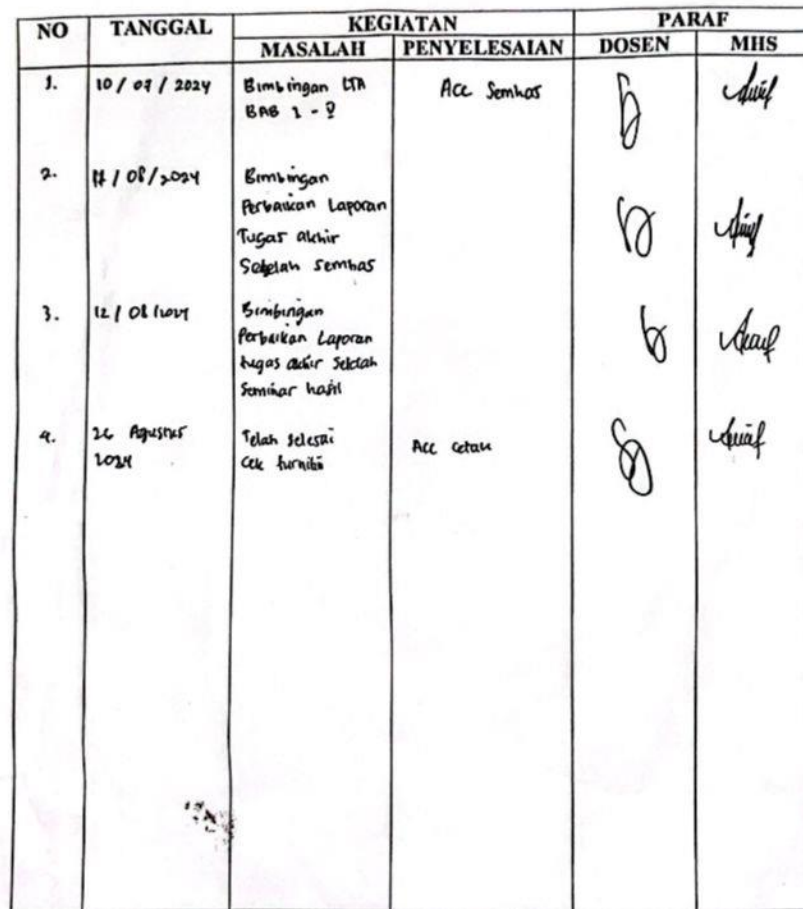 NO TANGGAL KEGIATAN PARAF
MASALAH PENYELESAIAN DOSEN MHS
1. 10 / 07 / 2024 Bimbingan LTA Acc Semhas
BAB 1 -
2. / 08 / 2024 Bimbingan
Perbaikan Laporan
Tugas akhir
Setelah semhas
3. 12 / 08 / 2024 Bimbingan
Perbaikan Laporan
tugas akhir setelah
Seminar hasil
4. 26 Agustus Telah selesai Acc cetak
2024 Cek turnitin